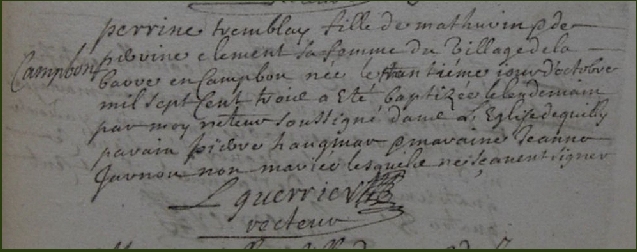 perrine tremblay fille de mathurin & de
perrine clement sa femme du village de la
Campbon
barre en Campbon née le trantiéme iour d'octobre
mil sept Cent trois a eté baptizée le lendemain
par moy recteur soussigné dans l'Eglise de quilly
parain pierre haugmar & maraine Jeanne
Jarnou non mariée lesquels ne sçauent signer
L guerrier
recteur